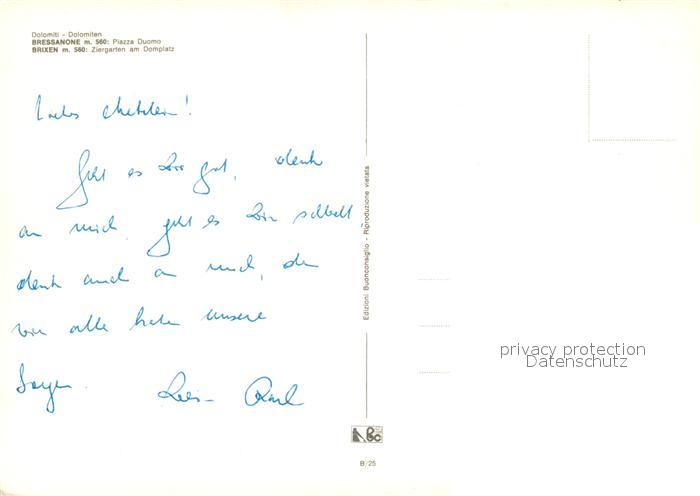 Dolomiti - Dolomiten
BRESSANONE m. 560: Piazza Duomo
BRIXEN m. 560: Ziergarten am Domplatz
Liebes
Geht es Dir gut, denk
an mich, geht es Dir schlecht,
denk auch an mich, da
wir alle haben unsere
Sorgen. Dein Karl
Edizioni Buonconsiglio - Riproduzione vietata
privacy protection
Datenschutz
B/25